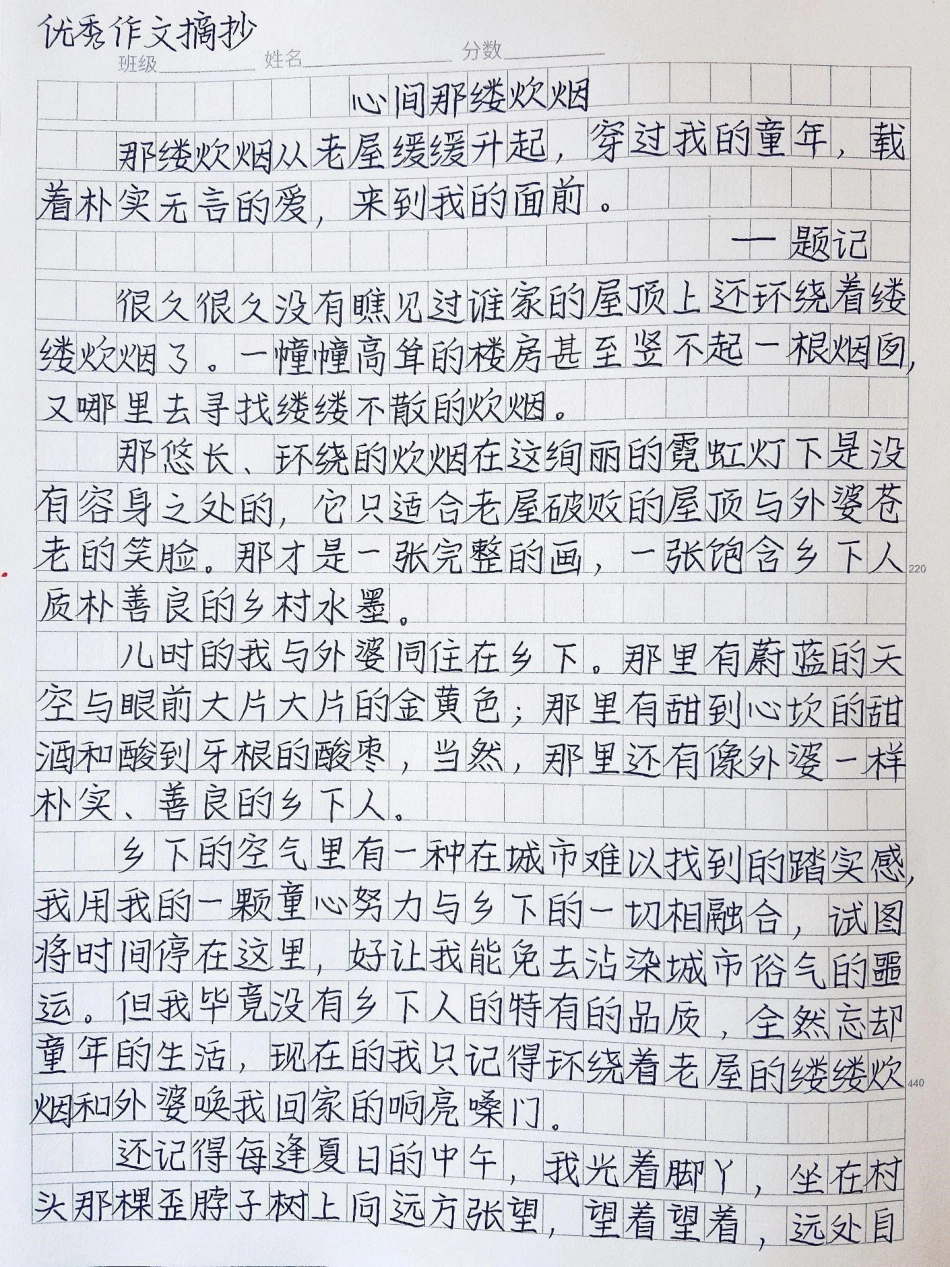 优秀作文摘抄
班级 姓名 分数
心间那缕炊烟
那缕炊烟从老屋缓缓升起，穿过我的童年，载
着朴实无言的爱，来到我的面前。
—题记
很久很久没有瞧见过谁家的屋顶上还环绕着缕
缕炊烟了。一幢幢高耸的楼房甚至竖不起一根烟囱，
又哪里去寻找缕缕不散的炊烟。
那悠长、环绕的炊烟在这绚丽的霓虹灯下是没
有容身之处的，它只适合老屋破败的屋顶与外婆苍
老的笑脸。那才是一张完整的画，一张饱含乡下人
220
质朴善良的乡村水墨。
儿时的我与外婆同住在乡下。那里有蔚蓝的天
空与眼前大片大片的金黄色；那里有甜到心坎的甜
酒和酸到牙根的酸枣，当然，那里还有像外婆一样
朴实、善良的乡下人。
乡下的空气里有一种在城市难以找到的踏实感，
我用我的一颗童心努力与乡下的一切相融合，试图
将时间停在这里，好让我能免去沾染城市俗气的噩
运。但我毕竟没有乡下人的特有的品质，全然忘却
童年的生活，现在的我只记得环绕着老屋的缕缕炊
440
烟和外婆唤我回家的响亮嗓门。
还记得每逢夏日的中午，我光着脚丫，坐在村
头那棵歪脖子树上向远方张望，望着望着，远处自